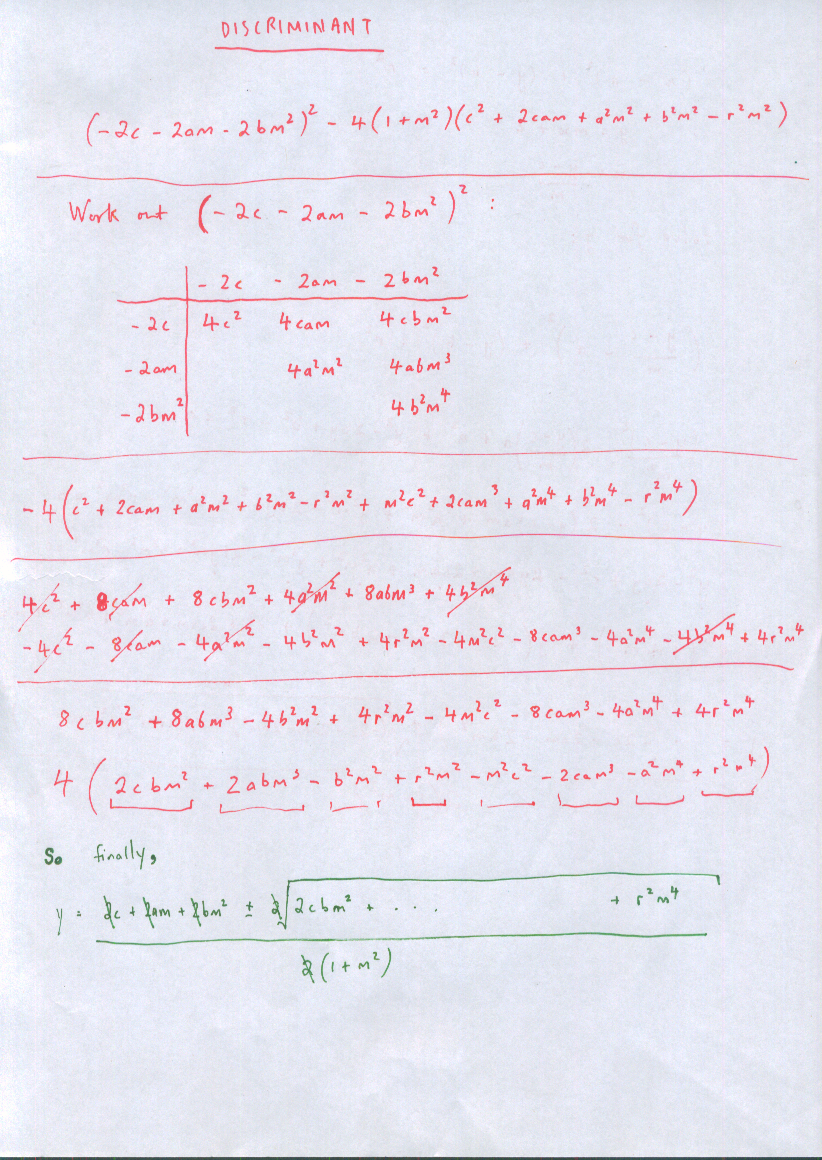 DISCRIMINANT
(-2c - 2am - 2bm²)² - 4(1+m²)(c² + 2cam + a²m² + b²m² - r²m²)
Work out (-2c - 2am - 2bm²)² :
- 2c - 2am - 2bm²
-2c 4c² 4cam 4cbm²
-2am 4a²m² 4abm³
-2bm² 4b²m⁴
-4(c² + 2cam + a²m² + b²m² - r²m² + m²c² + 2cam³ + a²m⁴ + b²m⁴ - r²m⁴)
4c² + 8cam + 8cbm² + 4a²m² + 8abm³ + 4b²m⁴
-4c² - 8cam - 4a²m² - 4b²m² + 4r²m² - 4m²c² - 8cam³ - 4a²m⁴ - 4b²m⁴ + 4r²m⁴
8cbm² + 8abm³ - 4b²m² + 4r²m² - 4m²c² - 8cam³ - 4a²m⁴ + 4r²m⁴
4(2cbm² + 2abm³ - b²m² + r²m² - m²c² - 2cam³ - a²m⁴ + r²m⁴)
So finally,
y = 2c + 2am + 2bm² ± 2√2cbm² + . . . + r²m⁴
2(1+m²)